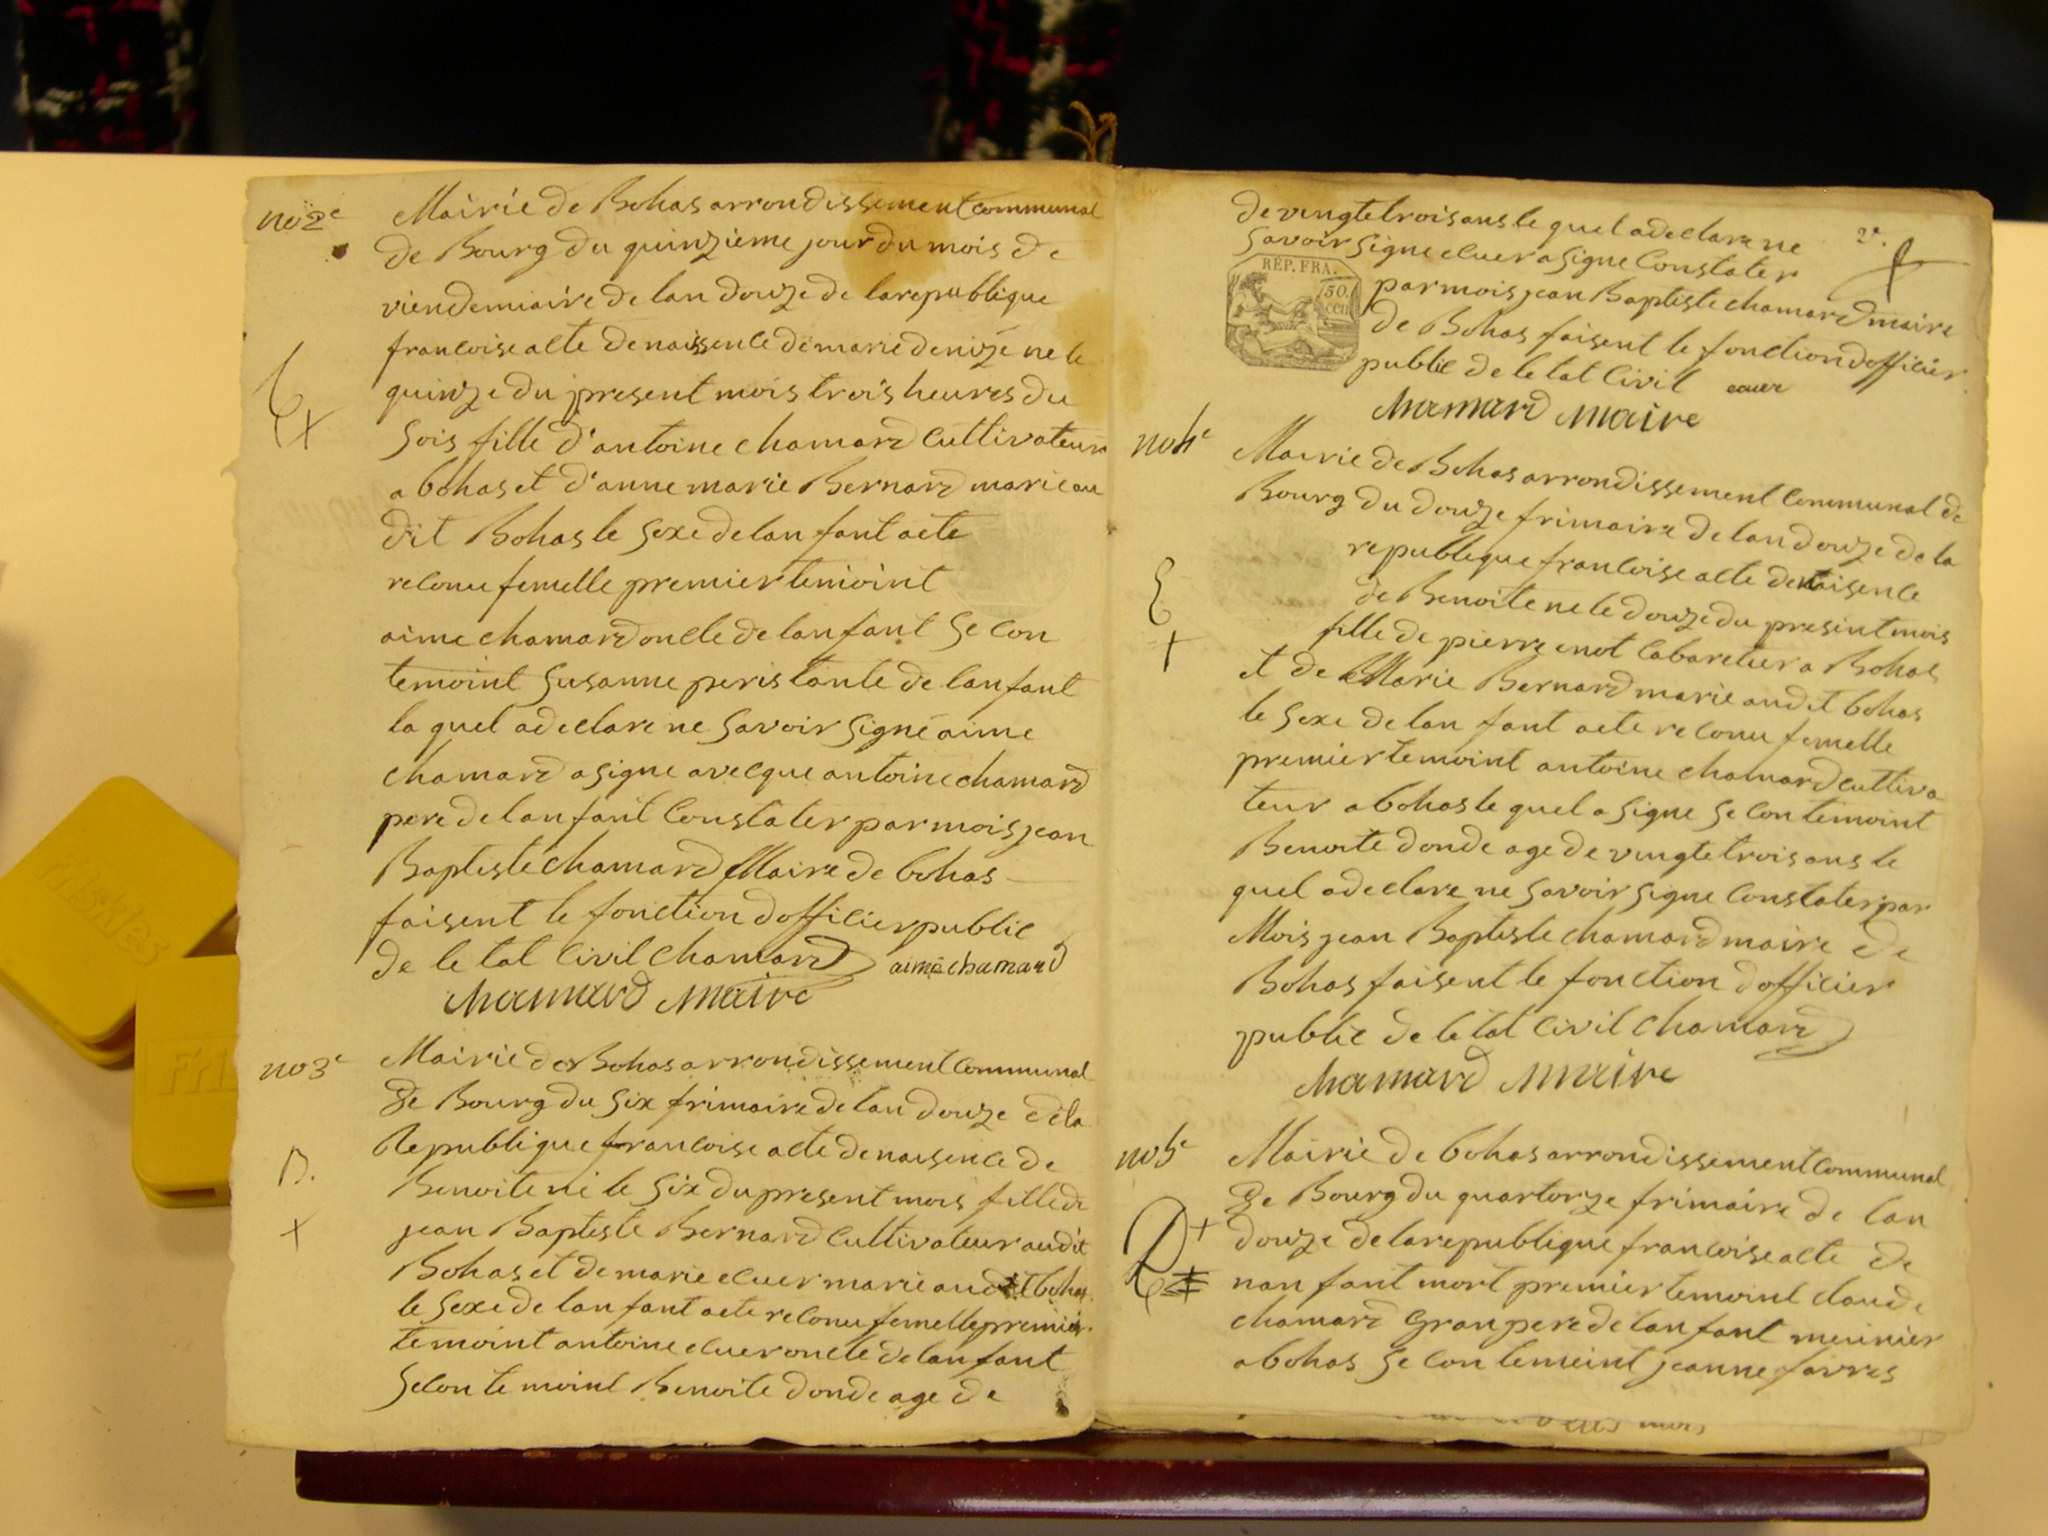 no 2e Mairie de Bohas arrondissement communal
de Bourg du quinzieme jour du mois de
viendemiaire de lan douze de larepublique
francoise acte de naissence de marie denize ne le
quinze du present mois trois heures du
sois fille d'antoine chamard cultivateur
a bohas et d'anne marie Bernard marie au
dit Bohas le sexe de lan fant aete
reconu femelle premier temoint
aime chamard oncle de lan fant se con
temoint susanne peris tante de lan fant
la quel adeclare ne savoir signé aime
chamard a signe avecque antoine chamard
pere de lan fant Constater par mois jean
Baptiste chamard Maire de bohas
faisent le fonction dofficier public
de le tat Civil chamard aimé chamard
chamard maire
no 3e Mairie de Bohas arrondissement communal
de Bourg du six frimaire de lan douze de la
Republique francoise acte de naisence de
B. Benoite né le six du present mois fille de
jean Baptiste Bernard Cultivateur audit
Bohas et de marie ecuer marie audit bohas
le sexe de lan fant aete reconu femelle premier
temoint antoine ecuer oncle de lan fant
secon te moint Benoite donde age de
de vingte trois ans le quel adeclare ne 2e.
savoir signe ecuer a signe Constater
RÉP. FRA.
50.
cen
par mois jean Baptiste chamard maire
de Bohas faisent le fonction dofficier
public de le tat Civil ecuer
chamard maire
no 4e Mairie de Bohas arrondissement Communal de
Bourg du douze frimaire de lan douze de la
republique francoise acte de naisence
de Benoite ne le douze du present mois
fille de pierre enot Cabaretier a Bohas
et de Marie Bernard marie audit bohas
le sexe de lan fant aete reconu femelle
premier temoint antoine chamard cultiva
teur a bohas le quel a signe se con temoint
Benoite donde age de vingte trois ans le
quel adeclare ne savoir signe Constater par
Mois jean Baptiste chamard maire de
Bohas faisent le fonction dofficier
public de le tat Civil chamard
chamard maire
no 5e Mairie de bohas arrondissement communal
de Bourg du quartorze frimaire de lan
douze de larepublique francoise acte de
nan fant mort premier temoint claude
chamard Granpere de lan fant meunier
a bohas se con temoint jeanne favres
friskies
Fri